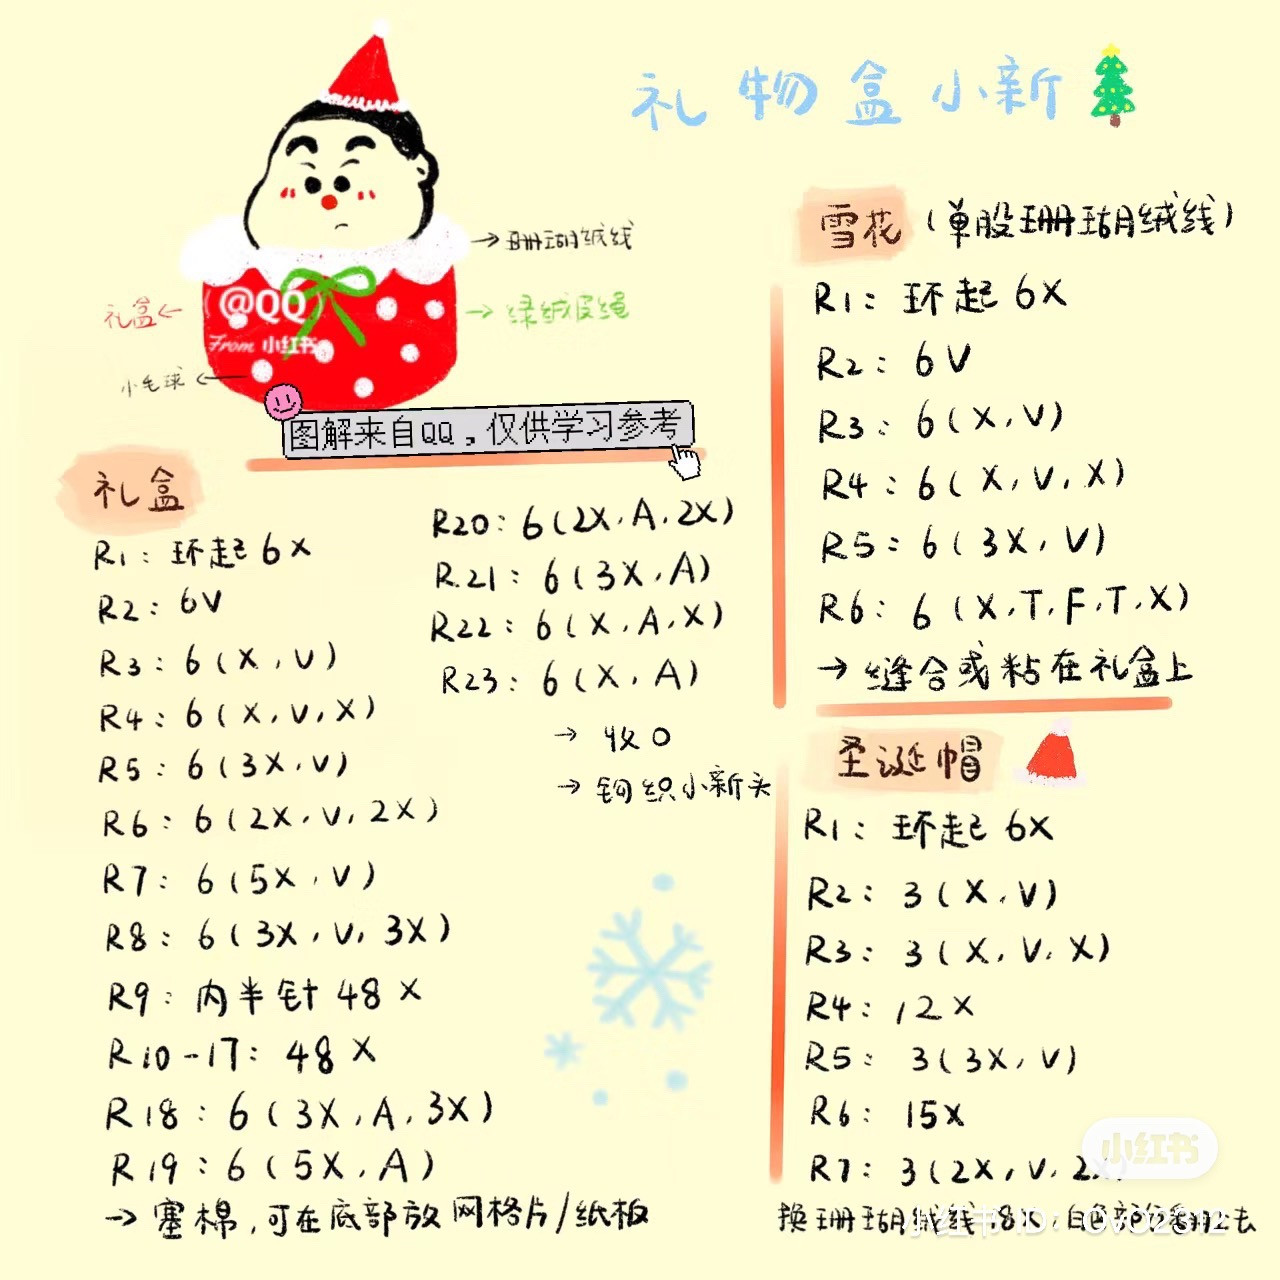 礼物盒小新
珊瑚绒线
礼盒
@QQ
From 小红书
绿绒皮绳
小毛球
图解来自QQ，仅供学习参考
礼盒
R1：环起6X
R2：6V
R3：6(X,V)
R4：6(X,V,X)
R5：6(3X,V)
R6：6(2X,V,2X)
R7：6(5X,V)
R8：6(3X,V,3X)
R9：内半针48X
R10-17：48X
R18：6(3X,A,3X)
R19：6(5X,A)
→塞棉,可在底部放网格片/纸板
R20：6(2X,A,2X)
R21：6(3X,A)
R22：6(X,A,X)
R23：6(X,A)
→收口
→钩织小新头
雪花(单股珊瑚绒线)
R1：环起6X
R2：6V
R3：6(X,V)
R4：6(X,V,X)
R5：6(3X,V)
R6：6(X,T,F,T,X)
→缝合或粘在礼盒上
圣诞帽
R1：环起6X
R2：3(X,V)
R3：3(X,V,X)
R4：12X
R5：3(3X,V)
R6：15X
R7：3(2X,V,2X)
换珊瑚绒线18X,白色部分翻上去
小红书
小红书ID：